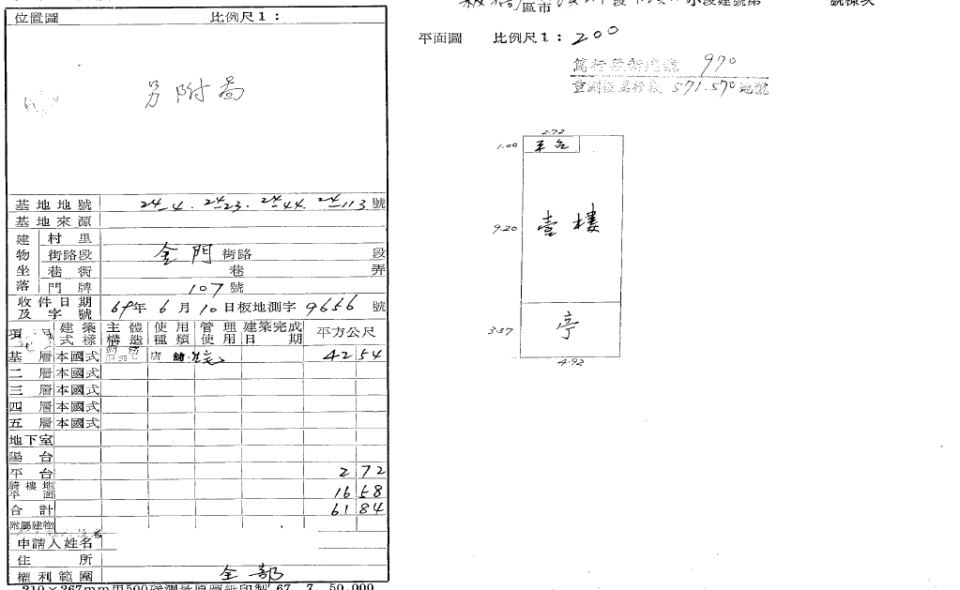 位置圖 比例尺1：
另附高
基地地號 24-4．24-23．24-44．24-113號
基地來源
建物坐落
村里
街路段 金門街路 段
巷衖 巷 弄
門牌 107號
收件日期及字號 69年6月10日板地測字9656號
項目 建築式樣 主體構造 使用種類 管理使用 建築完成日期 平方公尺
基層 本國式 店舖．住宅 42 54
二層 本國式
三層 本國式
四層 本國式
五層 本國式
地下室
陽台
平台 2 72
騎樓地平面 16 58
合計 61 84
附屬建物
申請人姓名
住所
權利範圍 全部
210×267mm用500磅測量原圖紙印製 67．7．50,000
板橋區市
小段建號第 號棟次
平面圖 比例尺1：200
篤行段新建號 970
重測後篤行段 571.570建號
2.72
1.00 平台
9.20 壹樓
3.37 亭
4.92